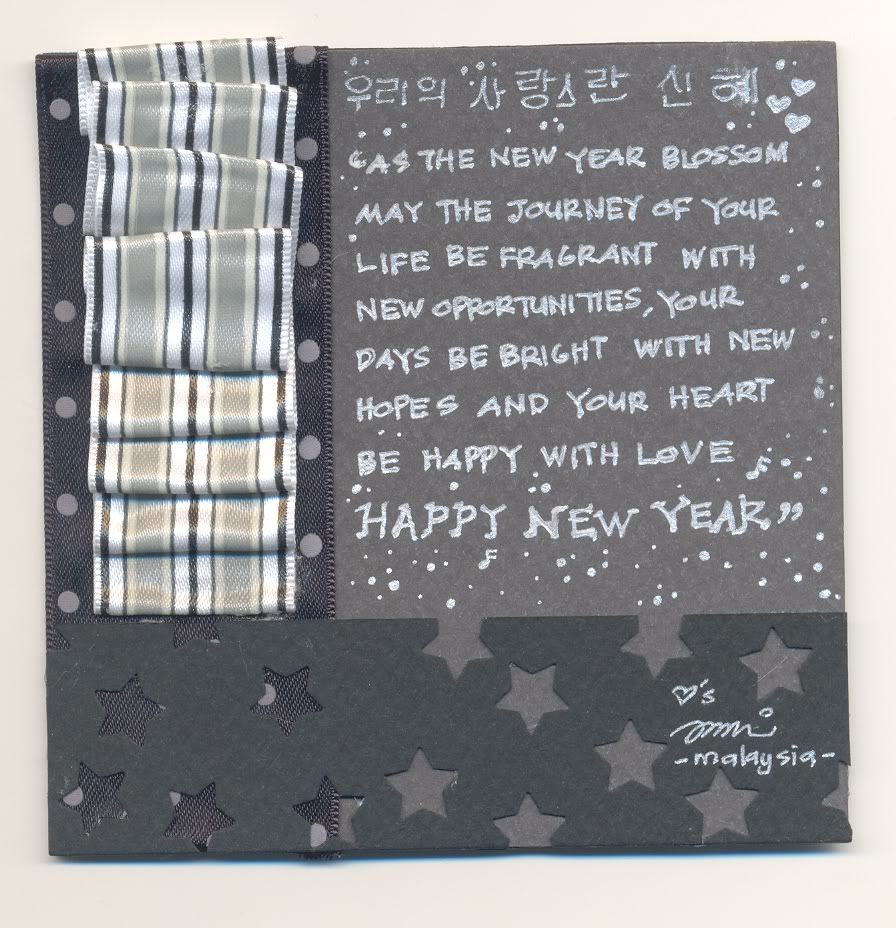 우리의 사랑스란 신혜
“AS THE NEW YEAR BLOSSOM
MAY THE JOURNEY OF YOUR
LIFE BE FRAGRANT WITH
NEW OPPORTUNITIES, YOUR
DAYS BE BRIGHT WITH NEW
HOPES AND YOUR HEART
BE HAPPY WITH LOVE
HAPPY NEW YEAR”
♡'s
-malaysia-